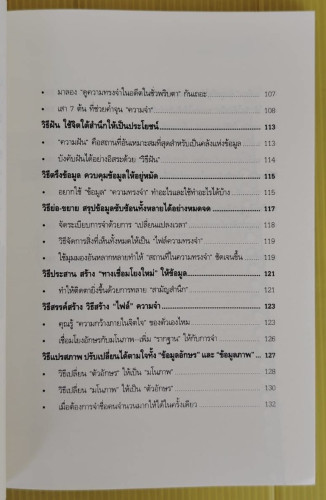 • มาลอง "ดูความทรงจำในอดีตในชั่วพริบตา" กันเถอะ 107
• เสา 7 ต้น ที่ช่วยค้ำจุน "ความจำ" 108
วิธีฝัน ใช้จิตใต้สำนึกให้เป็นประโยชน์ 113
• "ความฝัน" คือสถานที่อันเหมาะสมที่สุดสำหรับเป็นคลังแห่งข้อมูล 113
• บังคับฝันได้อย่างอิสระด้วย "วิธีฝัน" 114
วิธีตรึงข้อมูล ควบคุมข้อมูลให้อยู่หมัด 115
• อยากใช้ "ข้อมูล" "ความทรงจำ" ทำอะไรและใช้ทำอะไรได้บ้าง 115
วิธีย่อ-ขยาย สรุปข้อมูลซับซ้อนทั้งหลายได้อย่างหมดจด 117
• จัดระเบียบการจำด้วยการ "เปลี่ยนแปลงเวลา" 117
• วิธีจัดการสิ่งที่เห็นทั้งหมดให้เป็น "ไฟล์ความทรงจำ" 119
• ใช้มุมมองอันหลากหลายทำให้ "สถานที่ในความทรงจำ" ชัดเจนขึ้น 119
วิธีประสาน สร้าง "ทางเชื่อมโยงใหม่" ให้ข้อมูล 121
• ทำให้ติดตายิ่งขึ้นด้วยการทลาย "สามัญสำนึก" 121
วิธีสรรค์สร้าง วิธีสร้าง "ไฟล์" ความจำ 123
• คุณรู้ "ความกว้างภายในจิตใจ" ของตัวเองไหม 123
• เชื่อมโยงอักษรกับมโนภาพ—เพิ่ม "รากฐาน" ให้กับการจำ 124
วิธีแปรสภาพ ปรับเปลี่ยนได้ตามใจทั้ง "ข้อมูลอักษร" และ "ข้อมูลภาพ" 127
• วิธีเปลี่ยน "ตัวอักษร" ให้เป็น "มโนภาพ" 128
• วิธีเปลี่ยน "มโนภาพ" ให้เป็น "ตัวอักษร" 130
• เมื่อต้องการจำชื่อคนจำนวนมากให้ได้ในครั้งเดียว 132